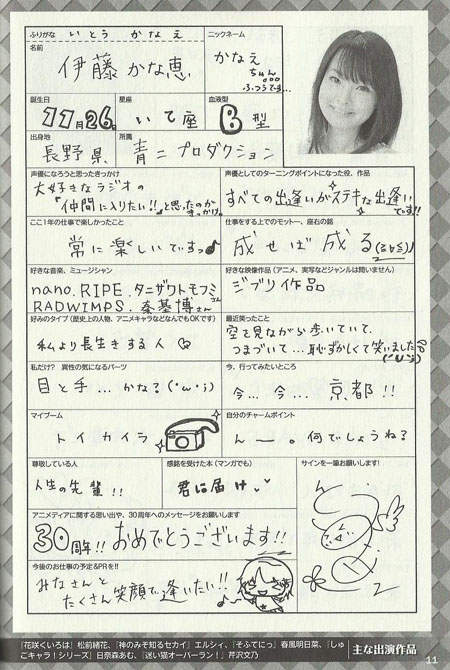 ふりがな いとう かなえ
ニックネーム
名前 伊藤 かな恵
かなえ
ちゃん
ふつうです…
誕生日 11月26日
星座 いて座
血液型 B型
出身地 長野県
所属 青二プロダクション
声優になろうと思ったきっかけ
大好きなラジオの
「仲間に入りたい!!」と思ったのが
きっかけ。
声優としてのターニングポイントになった役、作品
すべての出逢いがステキな出逢い
です!!
ここ1年の仕事で楽しかったこと
常に楽しいですっ♪
仕事をする上でのモットー、座右の銘
成せば成る(≧∀≦)
好きな音楽、ミュージシャン
nano.RIPE.タニザワトモフミさん
RADWIMPS.秦基博さん
好きな映像作品(アニメ、実写などジャンルは問いません)
ジブリ作品
好みのタイプ(歴史上の人物、アニメキャラなどなんでもOKです)
私より長生きする人
最近笑ったこと
空を見ながら歩いていて、
つまづいて…恥ずかしくて笑いました
私だけ? 異性の気になるパーツ
目と手…かな?(・ω・;)
今、行ってみたいところ
今…今…京都!!
マイブーム
トイカメラ
自分のチャームポイント
んー。何でしょうね?
尊敬している人
人生の先輩!!
感銘を受けた本(マンガでも)
君に届け
サインを一筆お願いします!
アニメディアに関する思い出や、30周年へのメッセージをお願いします
30周年!!おめでとうございます!!
今後のお仕事の予定&PRを!!
みなさんと
たくさん笑顔で逢いたい!!
『花咲くいろは』松前緒花、『神のみぞ知るセカイ』エルシィ、『そふてにっ』春風明日菜、『しゅ
ごキャラ!シリーズ』日奈森あむ、『迷い猫オーバーラン!』芹沢文乃
主な出演作品
11